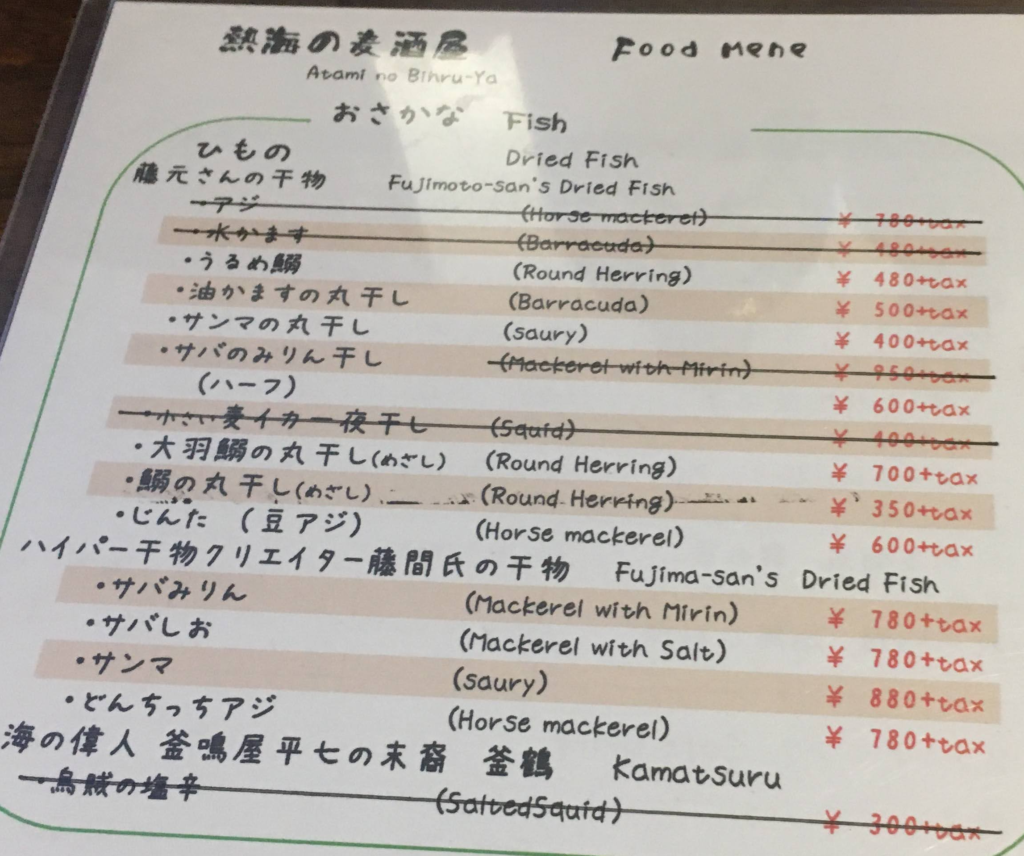 熱海の麦酒屋 Food Mene
Atami no Bihru-Ya
おさかな Fish
ひもの Dried Fish
藤元さんの干物 Fujimoto-san's Dried Fish
・アジ (Horse mackerel) ¥ 780+tax
・水かます (Barracuda) ¥ 480+tax
・うるめ鰯 (Round Herring) ¥ 480+tax
・油かますの丸干し (Barracuda) ¥ 500+tax
・サンマの丸干し (saury) ¥ 400+tax
・サバのみりん干し (Mackerel with Mirin) ¥ 950+tax
(ハーフ) ¥ 600+tax
・小さい麦イカ一夜干し (Squid) ¥ 400+tax
・大羽鰯の丸干し(めざし) (Round Herring) ¥ 700+tax
・鰯の丸干し(めざし) (Round Herring) ¥ 350+tax
・じんた (豆アジ) (Horse mackerel) ¥ 600+tax
ハイパー干物クリエイター藤間氏の干物 Fujima-san's Dried Fish
・サバみりん (Mackerel with Mirin) ¥ 780+tax
・サバしお (Mackerel with Salt) ¥ 780+tax
・サンマ (saury) ¥ 880+tax
・どんちっちアジ (Horse mackerel) ¥ 780+tax
海の偉人 釜鳴屋平七の末裔 釜鶴 Kamatsuru
・烏賊の塩辛 (SaltedSquid) ¥ 300+tax